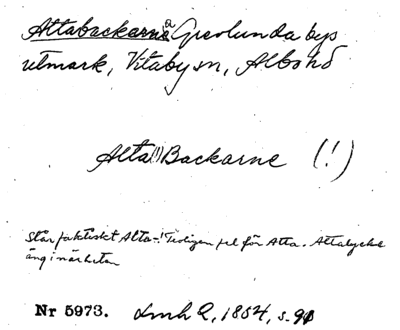 Attabackarna å Grevlunda bys
utmark, Vitaby sn, Albo hd
Alta(!) Backarne (!)
Står faktiskt Alta-! Troligen fel för Atta. Attalycke
äng i närheten
Nr 5973. Lmh Q, 1854, s. 91